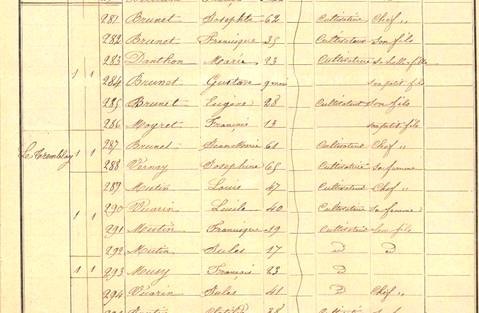 281 Brunet Josephte 62 Cultivatrice Chef "
282 Brunet Françisque 35 Cultivateur Son fils
283 Danthon Marie 23 Cultivatrice Sa belle-fille
1 1 284 Brunet Gustave 9 mois Son petit fils
285 Brunet Eugène 28 Cultivateur Son fils
286 Moyret François 13 Son petit fils
287 Brunet 61 Cultivateur Chef "
Le Tremblay 1 1 288 Vernay Josephine 65 Cultivatrice Sa femme
289 Mutin Louis 47 Cultivateur Chef "
290 Vivarin 40 Cultivatrice Sa femme
1 1 291 Mutin Françisque 19 Cultivateur Son fils
292 Mutin Jules 17 D D
1 1 293 François 23 D
294 Vivarin Jules 41 D Chef "